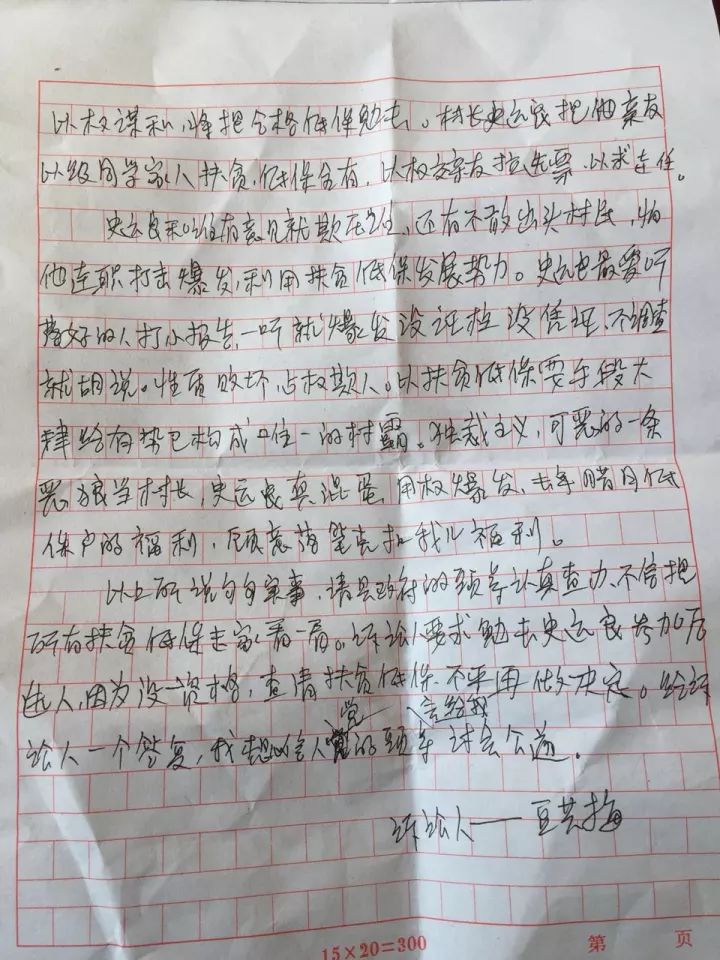 以权谋私,将把合格低保勉去。村长史运良把他亲友
以级同学家人扶贫,低保全有,以权交亲友拉选票,以求连任。
史运良和谁有意见就欺压谁,还有不敢出头村民,怕
他连职打击爆发,利用扶贫低保发展势力。史运良最爱听
好的人打小报告,一听就爆发没证柱没凭证,不调查
就胡说。性质败坏,占权欺人。以扶贫低保耍手段大
肆给有势已构成唯一的村霸。独裁主义,可恶的一条
恶狼当村长,史运良真混蛋,用权爆发,去年腊月低
保户的福利,意落笔克扣我儿福利。
以上所说句句实事,请县政府的领导认真查办,不信把
所有扶贫低保走家看一看。诉讼人要求勉去史运良参加后
选人,因为没一资格,查清扶贫低保,不平再做决定。给诉
党 言给我
讼人一个答复,我想信人的领导讨会公道。
诉讼人——豆芸梅
15×20=300
第 页